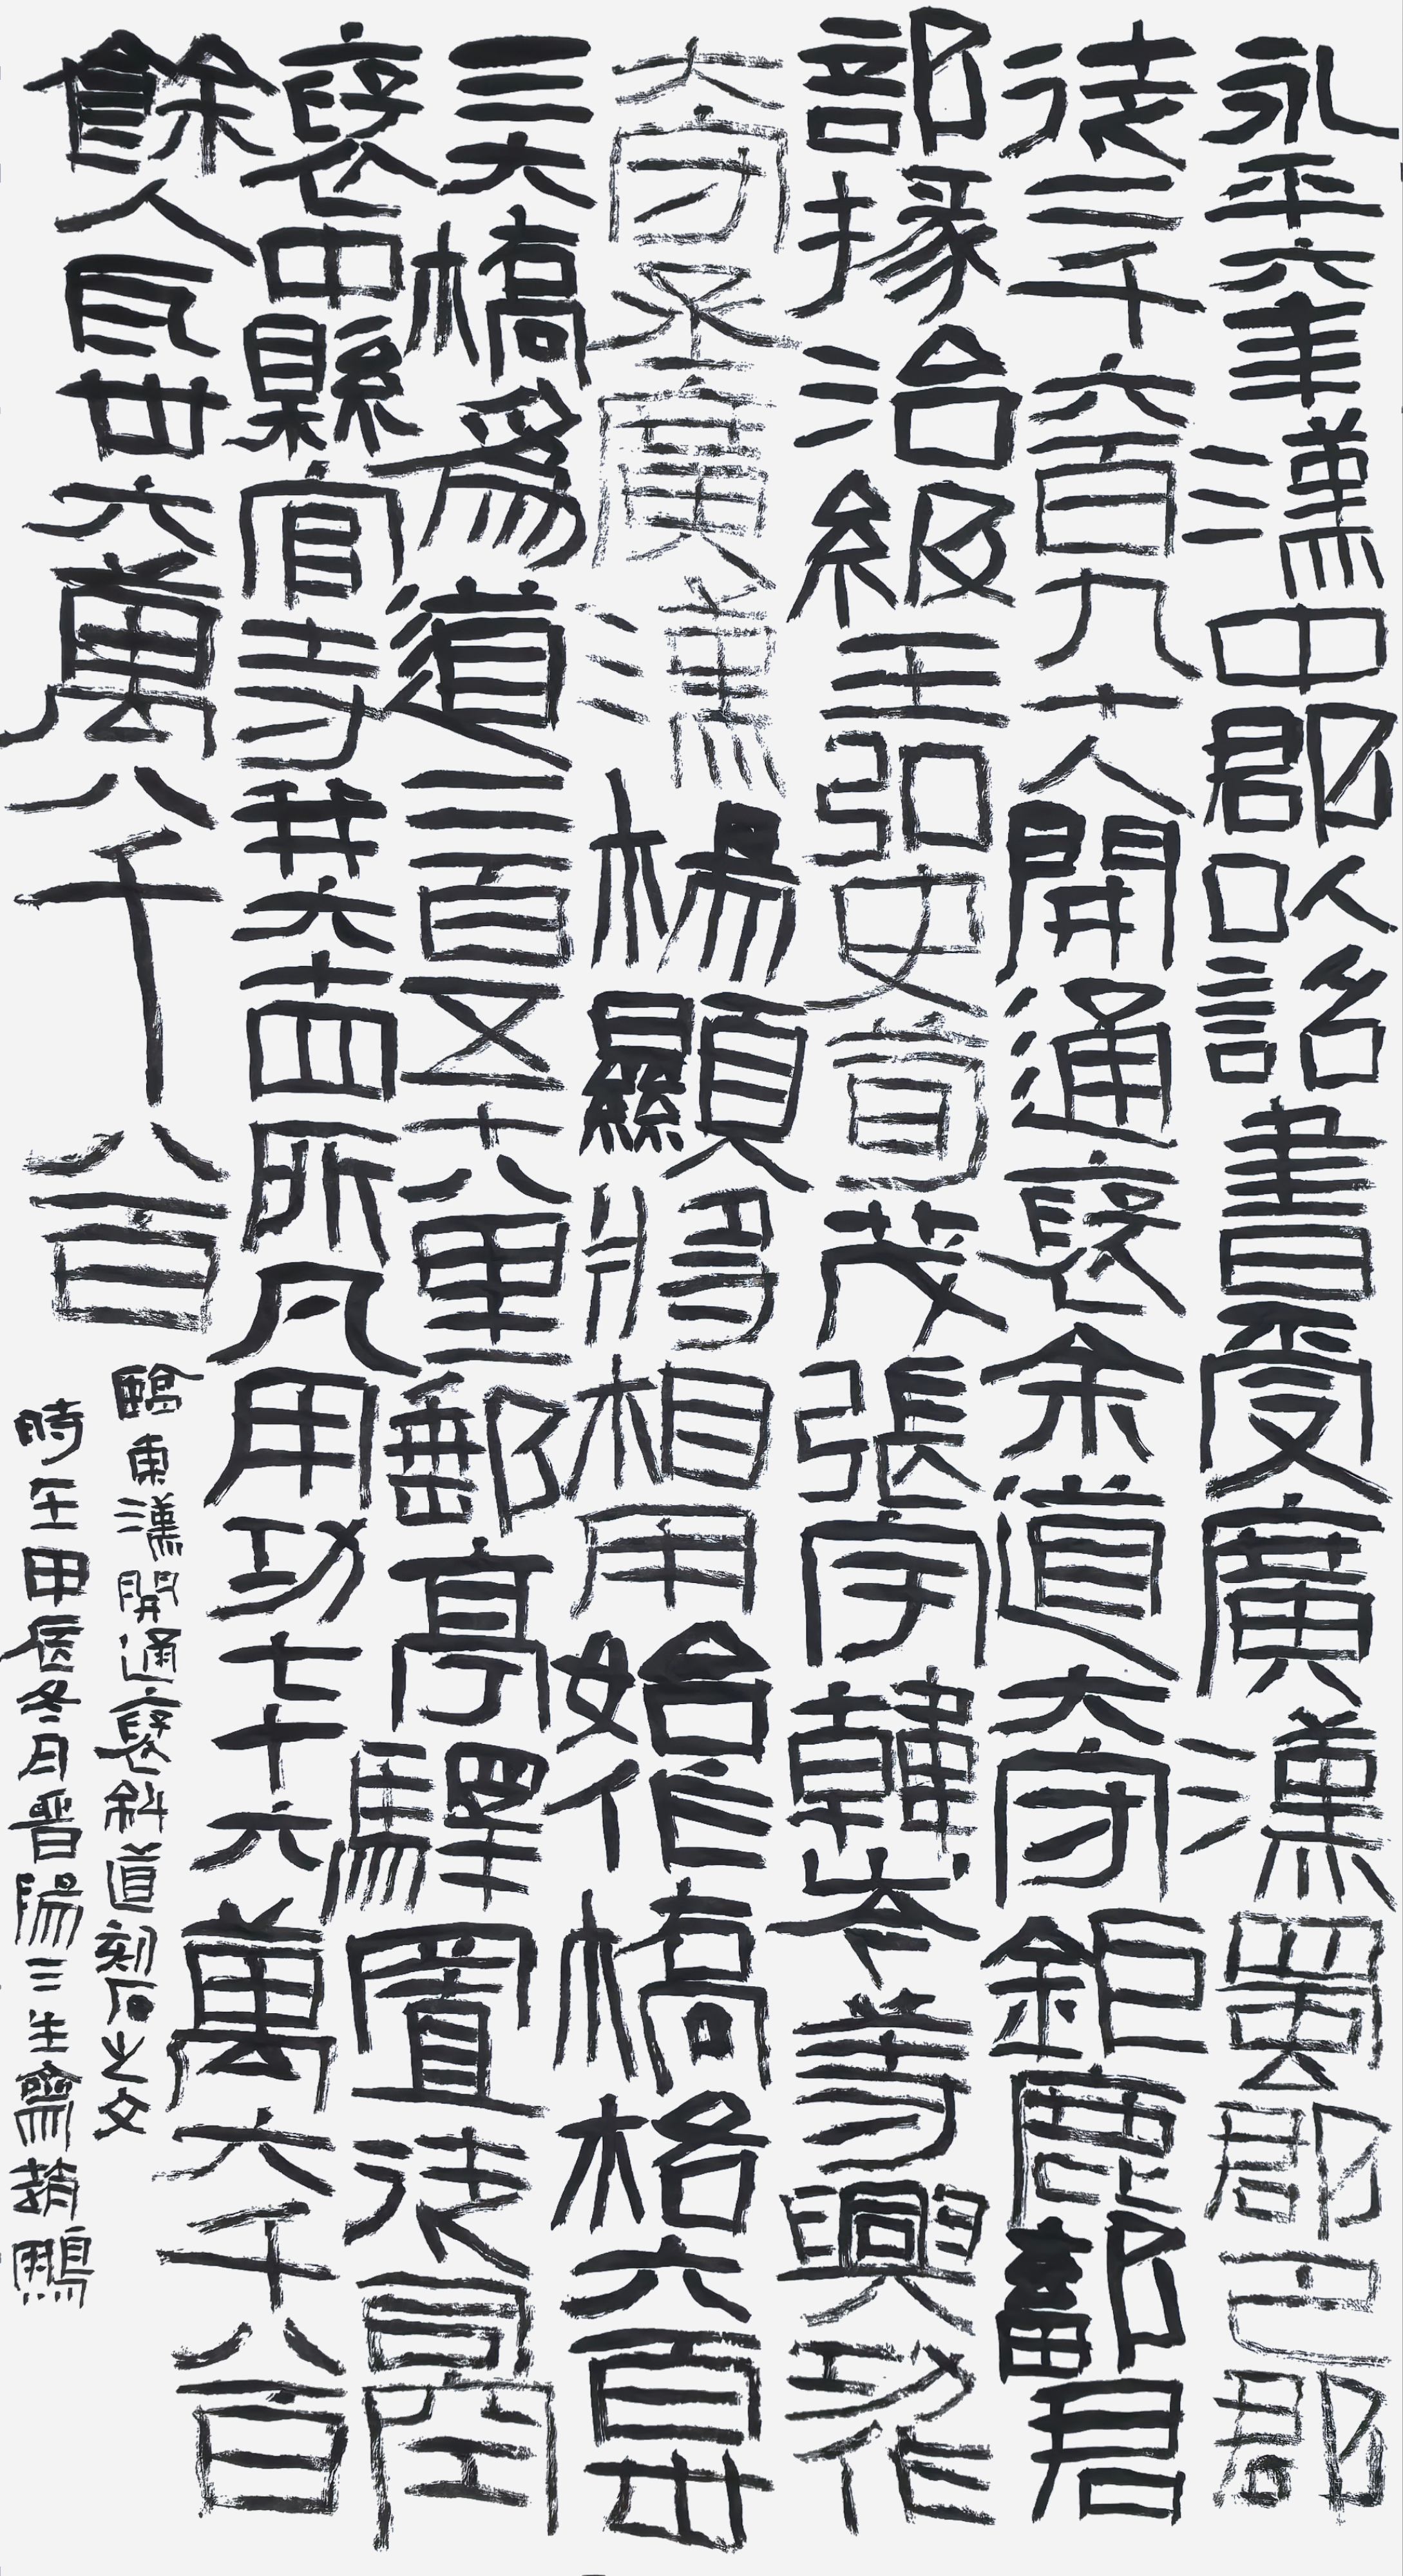 永平六年漢中郡以詔書受廣漢蜀郡巴郡
徒二千六百九十人開通褒余道大守鉅鹿鄐君
部掾治級王弘史荀茂張宇韓岑等興功作
大守丞廣漢楊顯將相用始作橋格六百卅
三大橋爲道二百五十八里郵亭驛置徒司空
褒中縣官寺并六十四所凡用功七十六萬六千八百
餘人瓦卅六萬八千八百
臨東漢開通褒斜道刻石之文
時在甲辰冬月晉陽三生齋趙鵬